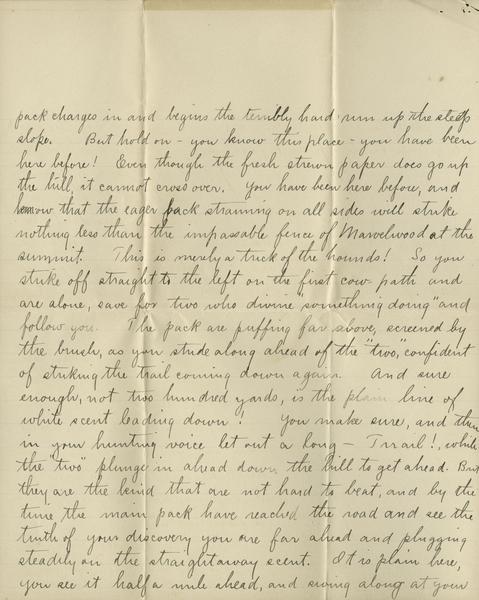 pack charges in and begins the terribly hard run up the steep
slope. But hold on - you know this place - you have been
here before! Even though the fresh strewn paper does go up
the hill, it cannot cross over. You have been here before, and
know that the eager pack straining on all sides will strike
nothing less than the impassable fence of Marvelwood at the
summit. This is merely a trick of the hounds! So you
strike off straight to the left on the first cow-path and
are alone, save for two who divine "something doing" and
follow you. The pack are puffing far above, screened by
the brush, as you stride along ahead of the "two", confident
of striking the trail coming down again. And sure
enough, not two hundred yards, is the plain line of
white scent leading down! You make sure, and then
in your hunting voice let out a long - Trrail!, while
the "two" plunge in ahead down the hill to get ahead. But
they are the kind that are not hard to beat, and by the
time the main pack have reached the road and see the
truth of your discovery you are far ahead and plugging
steadily on the straightaway scent. It is plain here,
you see it half a mile ahead, and swing along at your